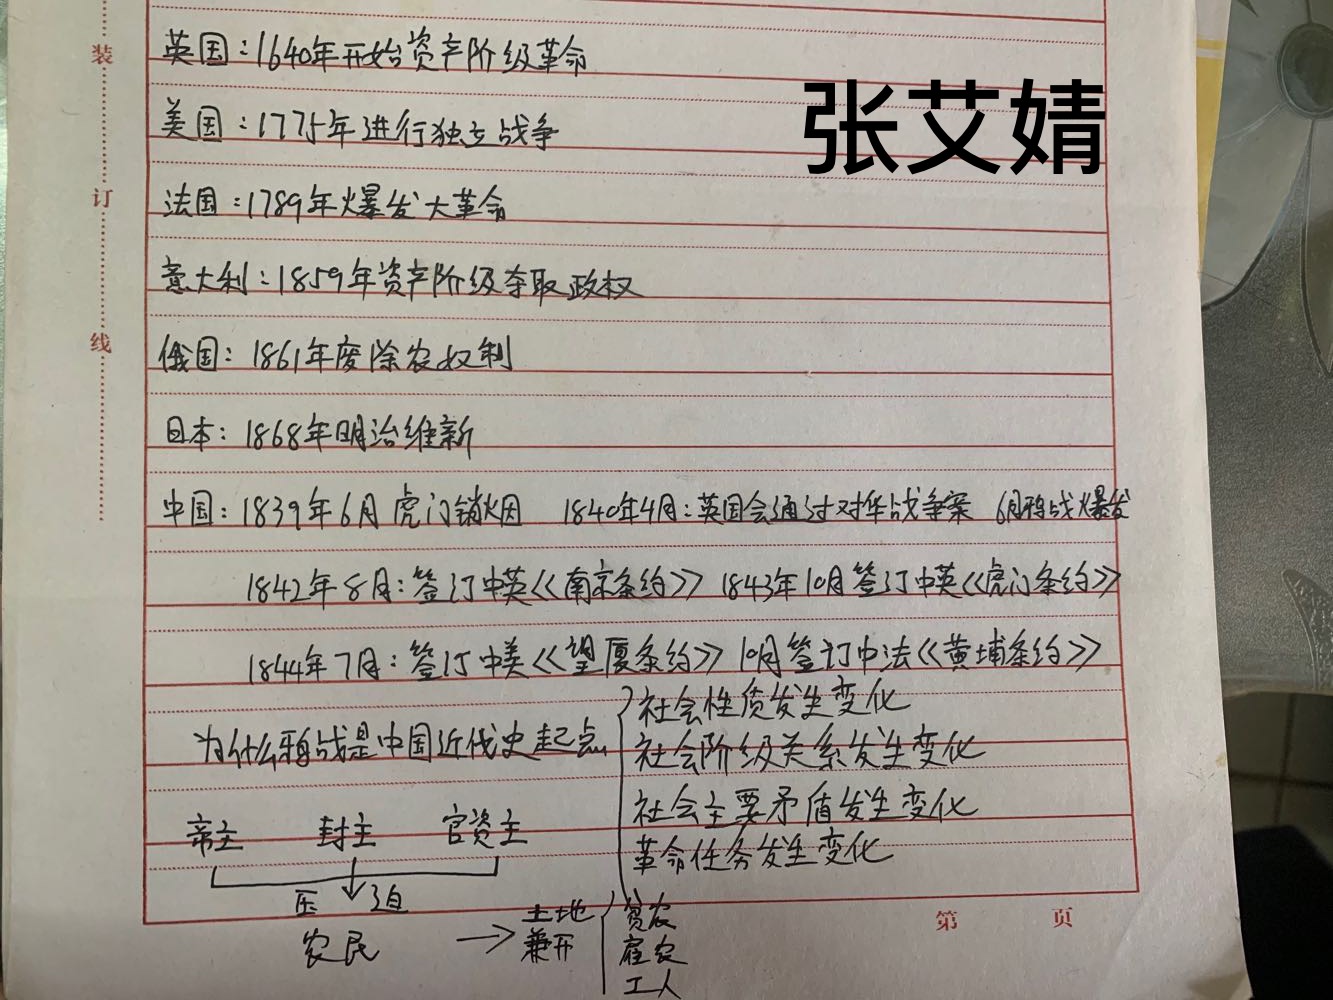 装
订
线
英国：1640年开始资产阶级革命
张艾婧
美国：1775年进行独立战争
法国：1789年爆发大革命
意大利：1859年资产阶级夺取政权
俄国：1861年废除农奴制
日本：1868年明治维新
中国：1839年6月虎门销烟 1840年4月：英国会通过对华战争案 6月鸦战爆发
1842年8月：签订中英《南京条约》 1843年10月签订中英《虎门条约》
1844年7月：签订中美《望厦条约》 10月签订中法《黄埔条约》
为什么鸦战是中国近代史起点
社会性质发生变化
社会阶级关系发生变化
社会主要矛盾发生变化
革命任务发生变化
帝主 封主 官资主
压迫
农民
土地
兼并
贫农
雇农
工人
第 页